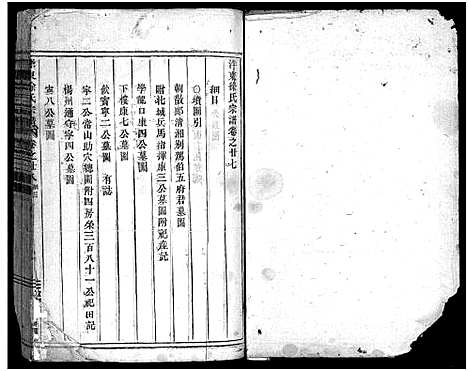 洋東徐氏宗譜卷之廿七
細目
○墳圖引
朝散郎清湘別駕伯五府君墓圖
附北城兵馬指揮康三公墓圖附祀產記
學龍口康四公墓圖
下樸康七公墓圖
欽賓寧二公墓圖 有誌
寧二公當山助穴總圖附四房榮三百八十一公祀田記
楊州通守寧四公墓圖
寧八公墓圖